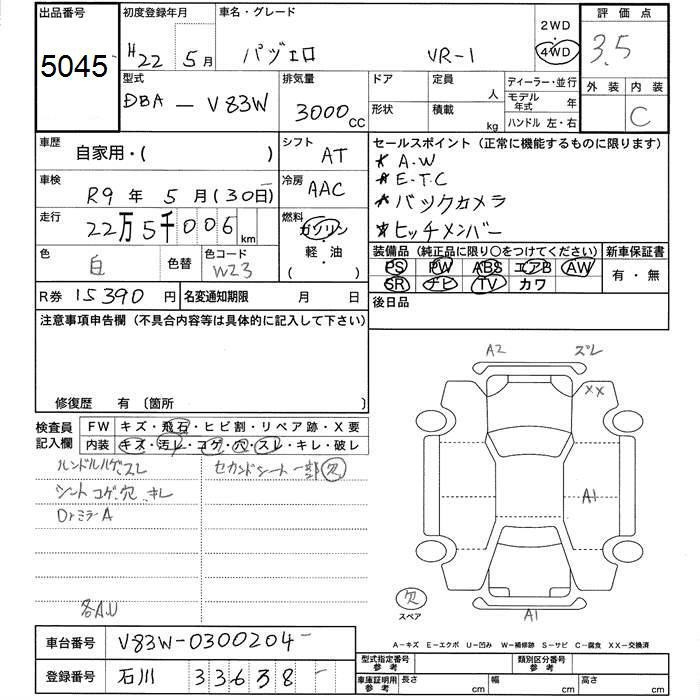 出品番号
5045
初度登録年月
H22 5月
車名・グレード
パジェロ VR-I
2WD
4WD
評価点
3.5
外装 内装
C
型式
DBA - V83W
排気量
3000cc
ドア
形状
定員 人
積載 kg
ディーラー・並行
モデル年式 年
ハンドル 左・右
車歴
自家用・( )
シフト
AT
セールスポイント (正常に機能するものに限ります)
* A.W
* E.T.C
* バックカメラ
* ヒッチメンバー
車検
R9年5月(30日)
冷房
AAC
走行
22万5千006km
燃料
ガソリン
軽・油
( )
色
白
色替
色コード
W23
装備品 (純正品に限り○をつけてください)
PS PW ABS エアB AW
SR ナビ TV カワ
新車保証書
有・無
R券 15390円
名変通知期限 月 日
後日品
注意事項申告欄 (不具合内容等は具体的に記入して下さい)
修復歴 有 〔箇所 〕
検査員記入欄
FW キズ・飛石・ヒビ割・リペア跡・X要
内装 キズ・汚レ・コゲ・穴・スレ・キレ・破レ
ハンドルハゲ、スレ
シートコゲ、穴、キレ
DrミラーA
セカンドシート一部欠
各A.U
A2
ズレ
XX
A1
欠
スペア
A1
A－キズ E－エクボ U－凹み W－補修跡 S－サビ C－腐食 XX－交換済
車台番号 V83W-0300204
登録番号 石川 33 638
型式指定番号 参考
類別区分番号 参考
車庫証明用 参考
長さ cm
幅 cm
高さ cm